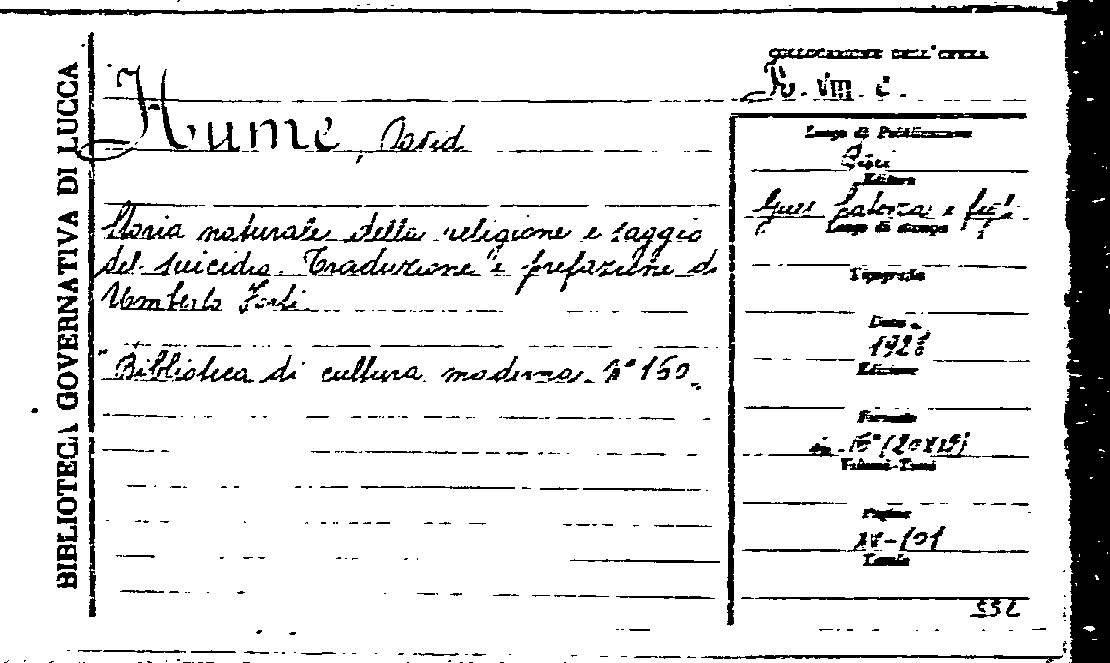 BIBLIOTECA GOVERNATIVA DI LUCCA
COLLOCAZIONE DELL'OPERA
R. VIII. c.
Hume, David
Storia naturale della religione e saggio
del suicidio. Traduzione e prefazione di
Umberto Forti.
"Biblioteca di cultura moderna. N° 160.
Luogo di Pubblicazione
Bari
Editore
Gius Laterza e figli
Luogo di stampa
Tipografia
Data
1928
Edizione
Formato
in 16° (20x13)
Volumi-Tomi
Pagine
XV-101
Tavole